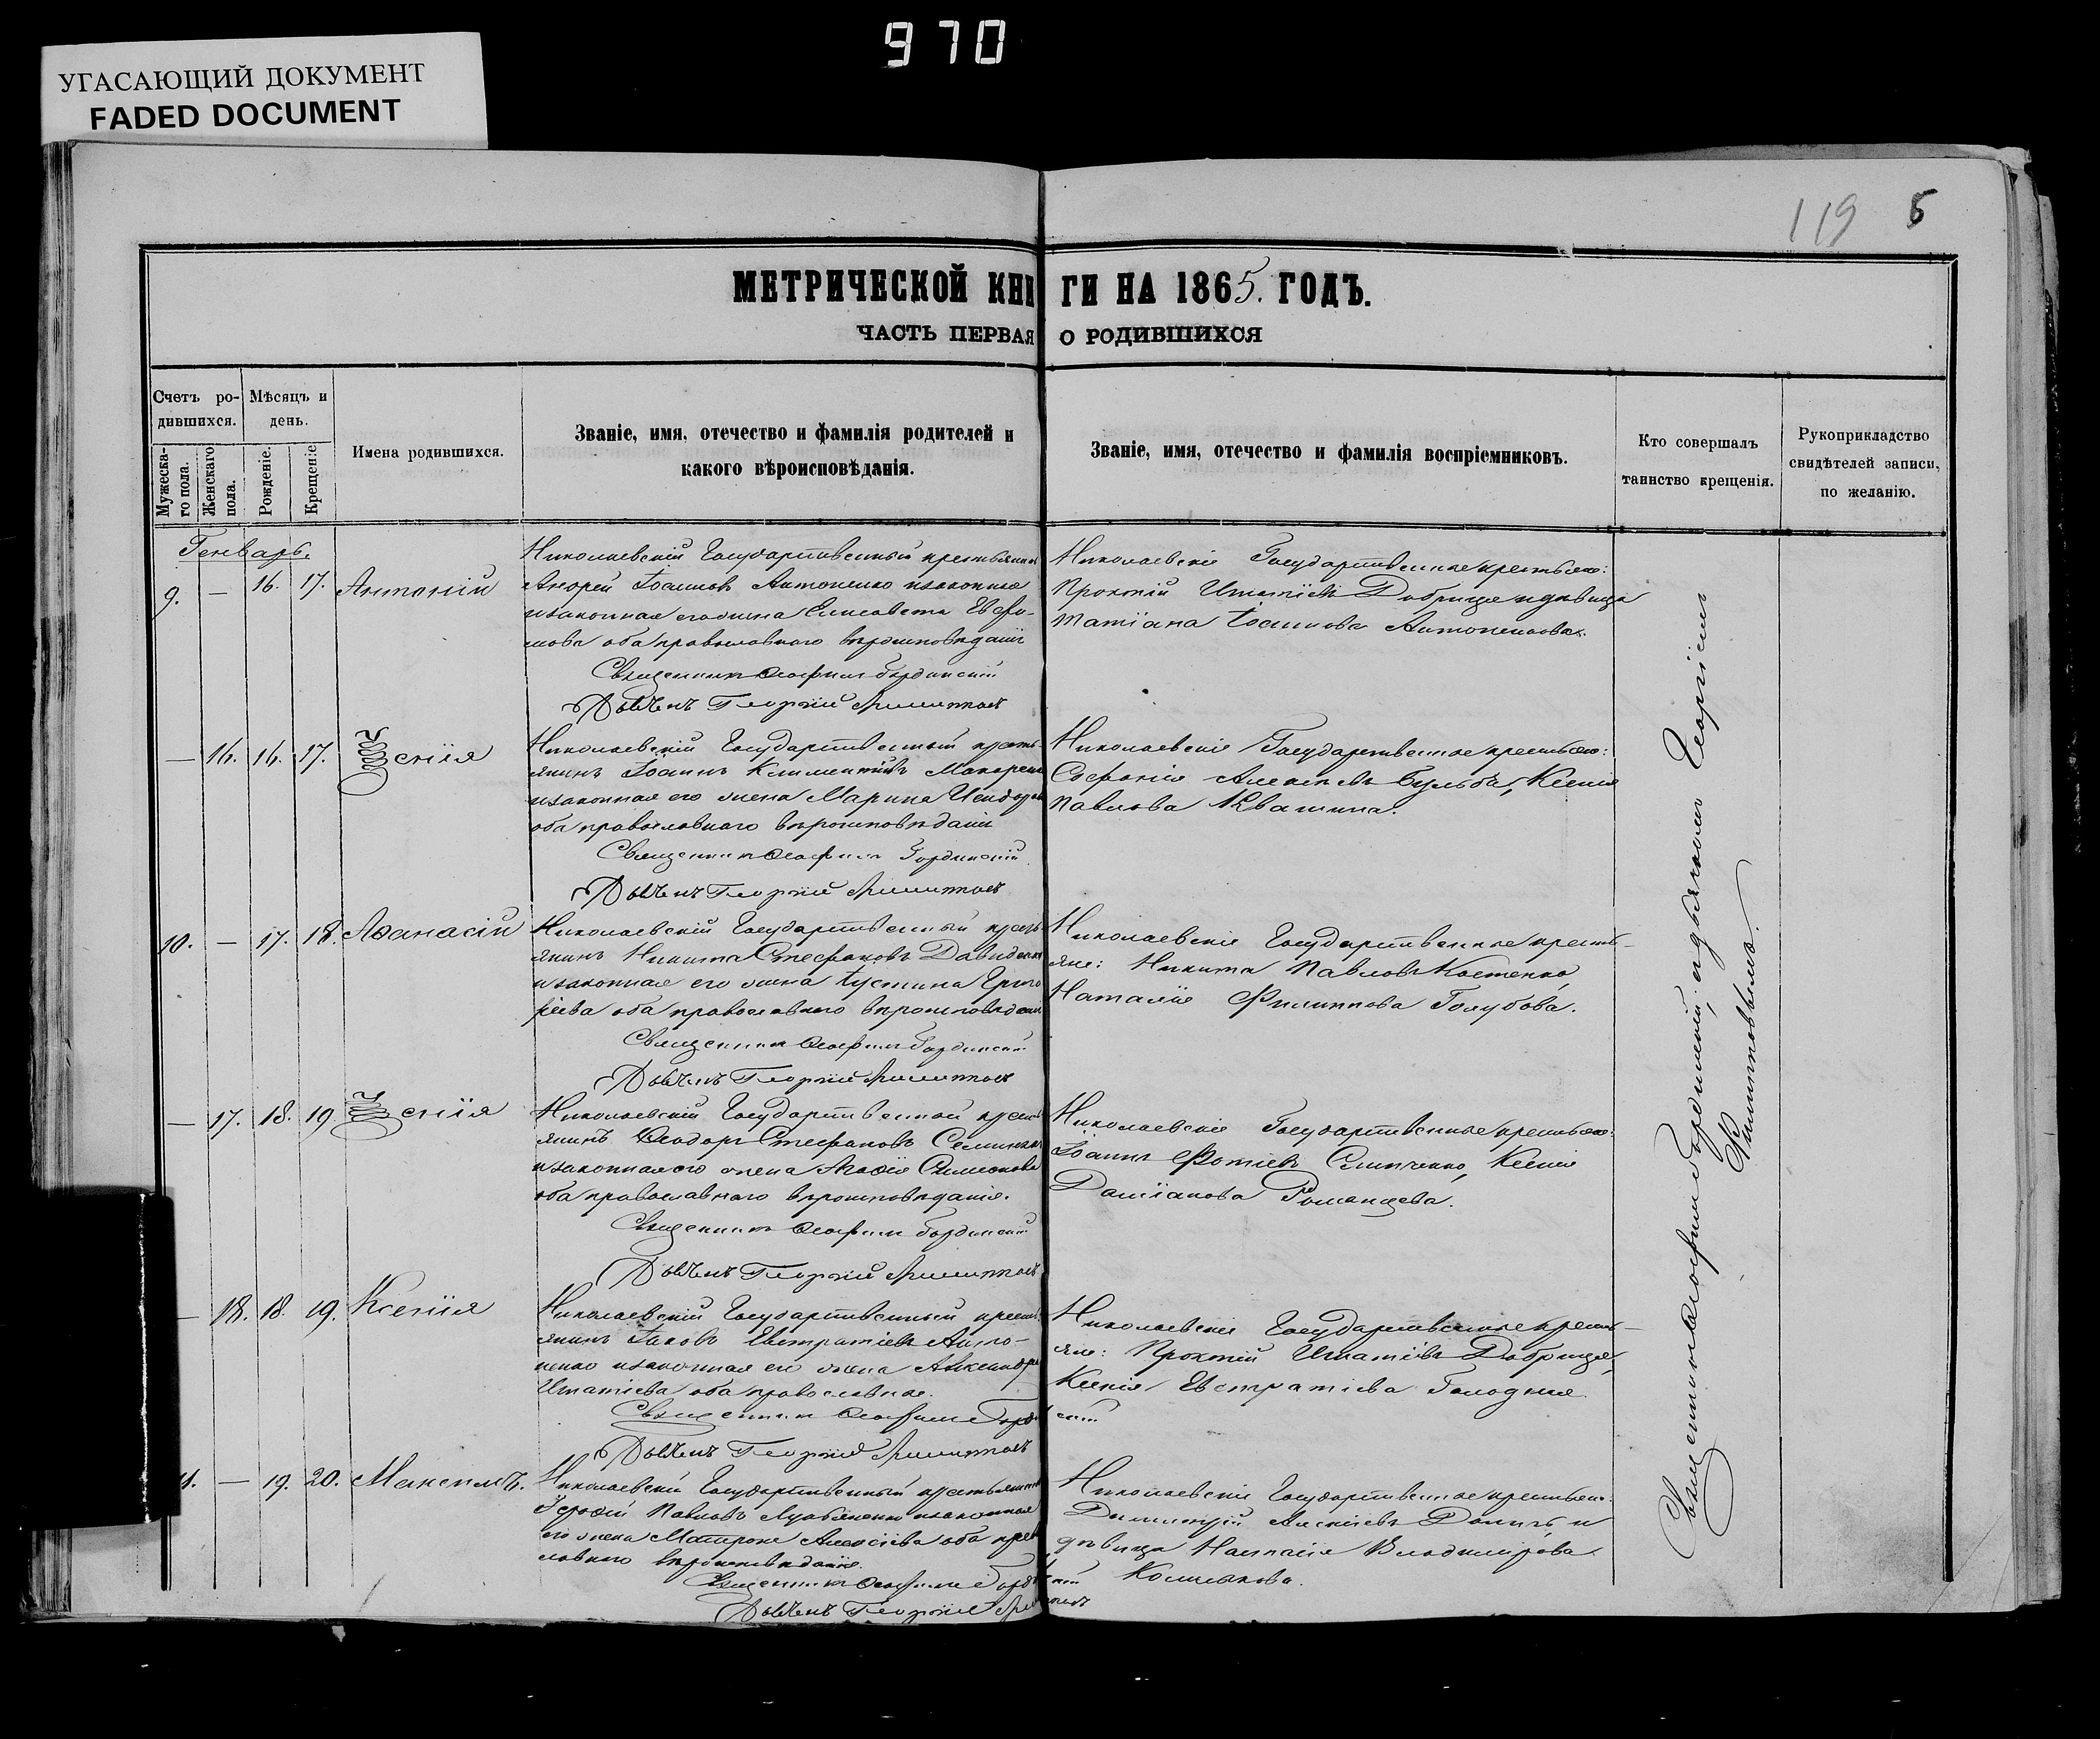 970
УГАСАЮЩИЙ ДОКУМЕНТ
FADED DOCUMENT
119 5
МЕТРИЧЕСКОЙ КНИГИ НА 1865. ГОДЪ.
ЧАСТЬ ПЕРВАЯ О РОДИВШИХСЯ
Счетъ ро-
дившихся.
Мужеска-
го пола.
Женскаго
пола.
Мѣсяцъ и
день.
Рожденіе.
Крещеніе
Имена родившихся.
Званіе, имя, отечество и фамилія родителей и
какого вѣроисповѣданія.
Званіе, имя, отечество и фамилія воспріемниковъ.
Кто совершалъ
таинство крещенія.
Рукоприкладство
свидѣтелей записи,
по желанію.
Генварь.
9. — 16. 17. Антоній
Николаевскій Государственный крестьянин
Андрей Іоанновъ Антоненко и законная
его жена Елисавета
оба православнаго вѣроисповѣданія
Священникъ Ѳеофилъ Бординскій
Дьячекъ Георгій Филиповъ
Николаевскіе Государственные крестьяне:
Прокпій Игнатіевъ Добрица и дѣвица
Татіана Іоаннова Антоненкова.
— 16. 16. 17. Ксенія
Николаевскій Государственный кресть-
янинъ Іоаннъ Климентіевъ Макарен
и законная его жена Марина
оба православнаго вѣроисповѣданія
Священникъ Ѳеофилъ Бординскій
Дьячекъ Георгій Филиповъ
Николаевскіе Государственные крестьяне:
Софроній Алексѣевъ Бульба, Ксенія
Павлова Квашина.
10. — 17. 18. Аѳанасій
Николаевскій Государственный кресть-
янинъ Никита Стефановъ Давиденк
и законная его жена Іустина Григо
ріева оба православнаго вѣроисповѣданія
Священникъ Ѳеофилъ Бординскій
Дьячекъ Георгій Филиповъ
Николаевскіе Государственные кресть-
яне: Никита Павловъ Костенко,
Наталія Филиппова Голубова.
— 17. 18. 19 Ксенія
Николаевскій Государственной кресть
янинъ Ѳеодоръ Стефановъ
и законная его жена Агафія Симеонова
оба православнаго вѣроисповѣданія.
Священникъ Ѳеофилъ Бординскій
Дьячекъ Георгій Филиповъ
Николаевскіе Государственные крестьяне:
Іоаннъ Фотіевъ Слипченко, Ксенія
Даміанова Романцева.
— 18. 18. 19. Ксенія
Николаевскій Государственный кресть
янинъ Іаковъ Евстратіевъ Анто-
ненко и законная его жена Александра
Игнатіева оба православные.
Священникъ Ѳеофилъ Бординскій
Дьячекъ Георгій Филиповъ
Николаевскіе Государственные кресть-
яне: Прокпій Игнатіевъ Добрица,
Ксенія Евстратіева Голодная
11. — 19. 20. Максимъ.
Николаевскій Государственный крестьянинъ
Павловъ и законная
его жена Матрона Алексіева оба право
славнаго вѣроисповѣданія.
Священникъ Ѳеофилъ Бординскій
Дьячекъ Георгій Филиповъ
Николаевскіе Государственные крестьяне:
Димитрій Алексіевъ и
дѣвица Наталія Владимірова
Колмакова.
Священникъ Ѳеофилъ Бординскій, съ дьячкомъ Георгіемъ
Филиповымъ.